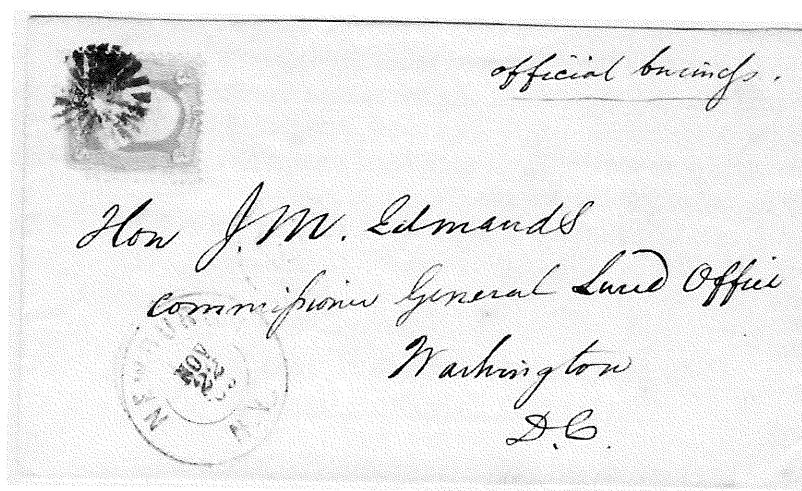 official business.
Hon J. M. Edmands
Commissioner General Land Office
Washington
D.C.
NOV
22
N.Y.